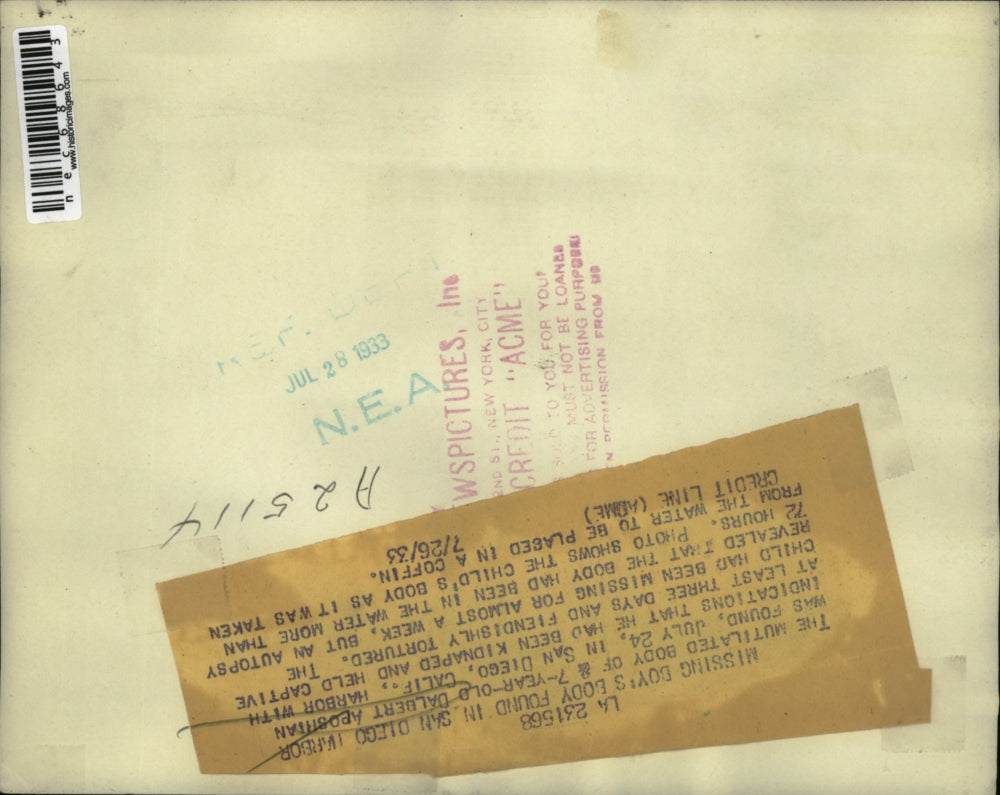 nec68643
www.historicimages.com
JUL 28 1933
N.E.A.
WSPICTURES, Inc
2ND ST., NEW YORK, CITY
CREDIT "ACME"
TO YOU FOR YOUR
MUST NOT BE LOANED
FOR ADVERTISING PURPOSES
PERMISSION FROM US
A25114
LA 231568
MISSING BOY'S BODY FOUND IN SAN DIEGO HARBOR
THE MUTILATED BODY OF 7-YEAR-OLD DALBERT APOSHIAN
WAS FOUND, JULY 24, IN SAN DIEGO, CALIF., HARBOR WITH
INDICATIONS THAT HE HAD BEEN KIDNAPED AND HELD CAPTIVE
AT LEAST THREE DAYS AND FIENDISHLY TORTURED. THE
CHILD HAD BEEN MISSING FOR ALMOST A WEEK, BUT AN AUTOPSY
REVEALED THAT THE BODY HAD BEEN IN THE WATER MORE THAN
72 HOURS. PHOTO SHOWS THE CHILD'S BODY AS IT WAS TAKEN
FROM THE WATER TO BE PLACED IN A COFFIN.
CREDIT LINE (ACME) 7/26/33